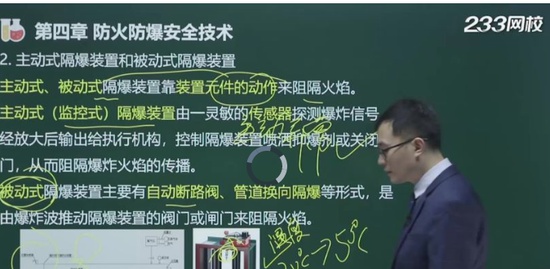 第四章 防火防爆安全技术
233网校
2. 主动式隔爆装置和被动式隔爆装置
主动式、被动式隔爆装置靠装置元件的动作来阻隔火焰。
主动式（监控式）隔爆装置由一灵敏的传感器探测爆炸信号
经放大后输出给执行机构，控制隔爆装置喷洒 爆剂或关闭
门，从而阻隔爆炸火焰的传播。
被动式隔爆装置主要有自动断路阀、管道换向隔爆等形式，是
由爆炸波推动隔爆装置的阀门或闸门来阻隔火焰。
温度
75℃